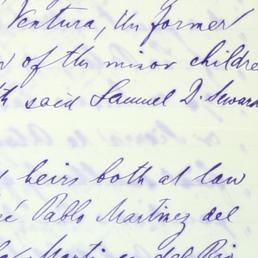 Ventura, the former
of the minor children
said Samuel D. Seward
heirs both at law
Pablo Martinez del
Martinez del Rio